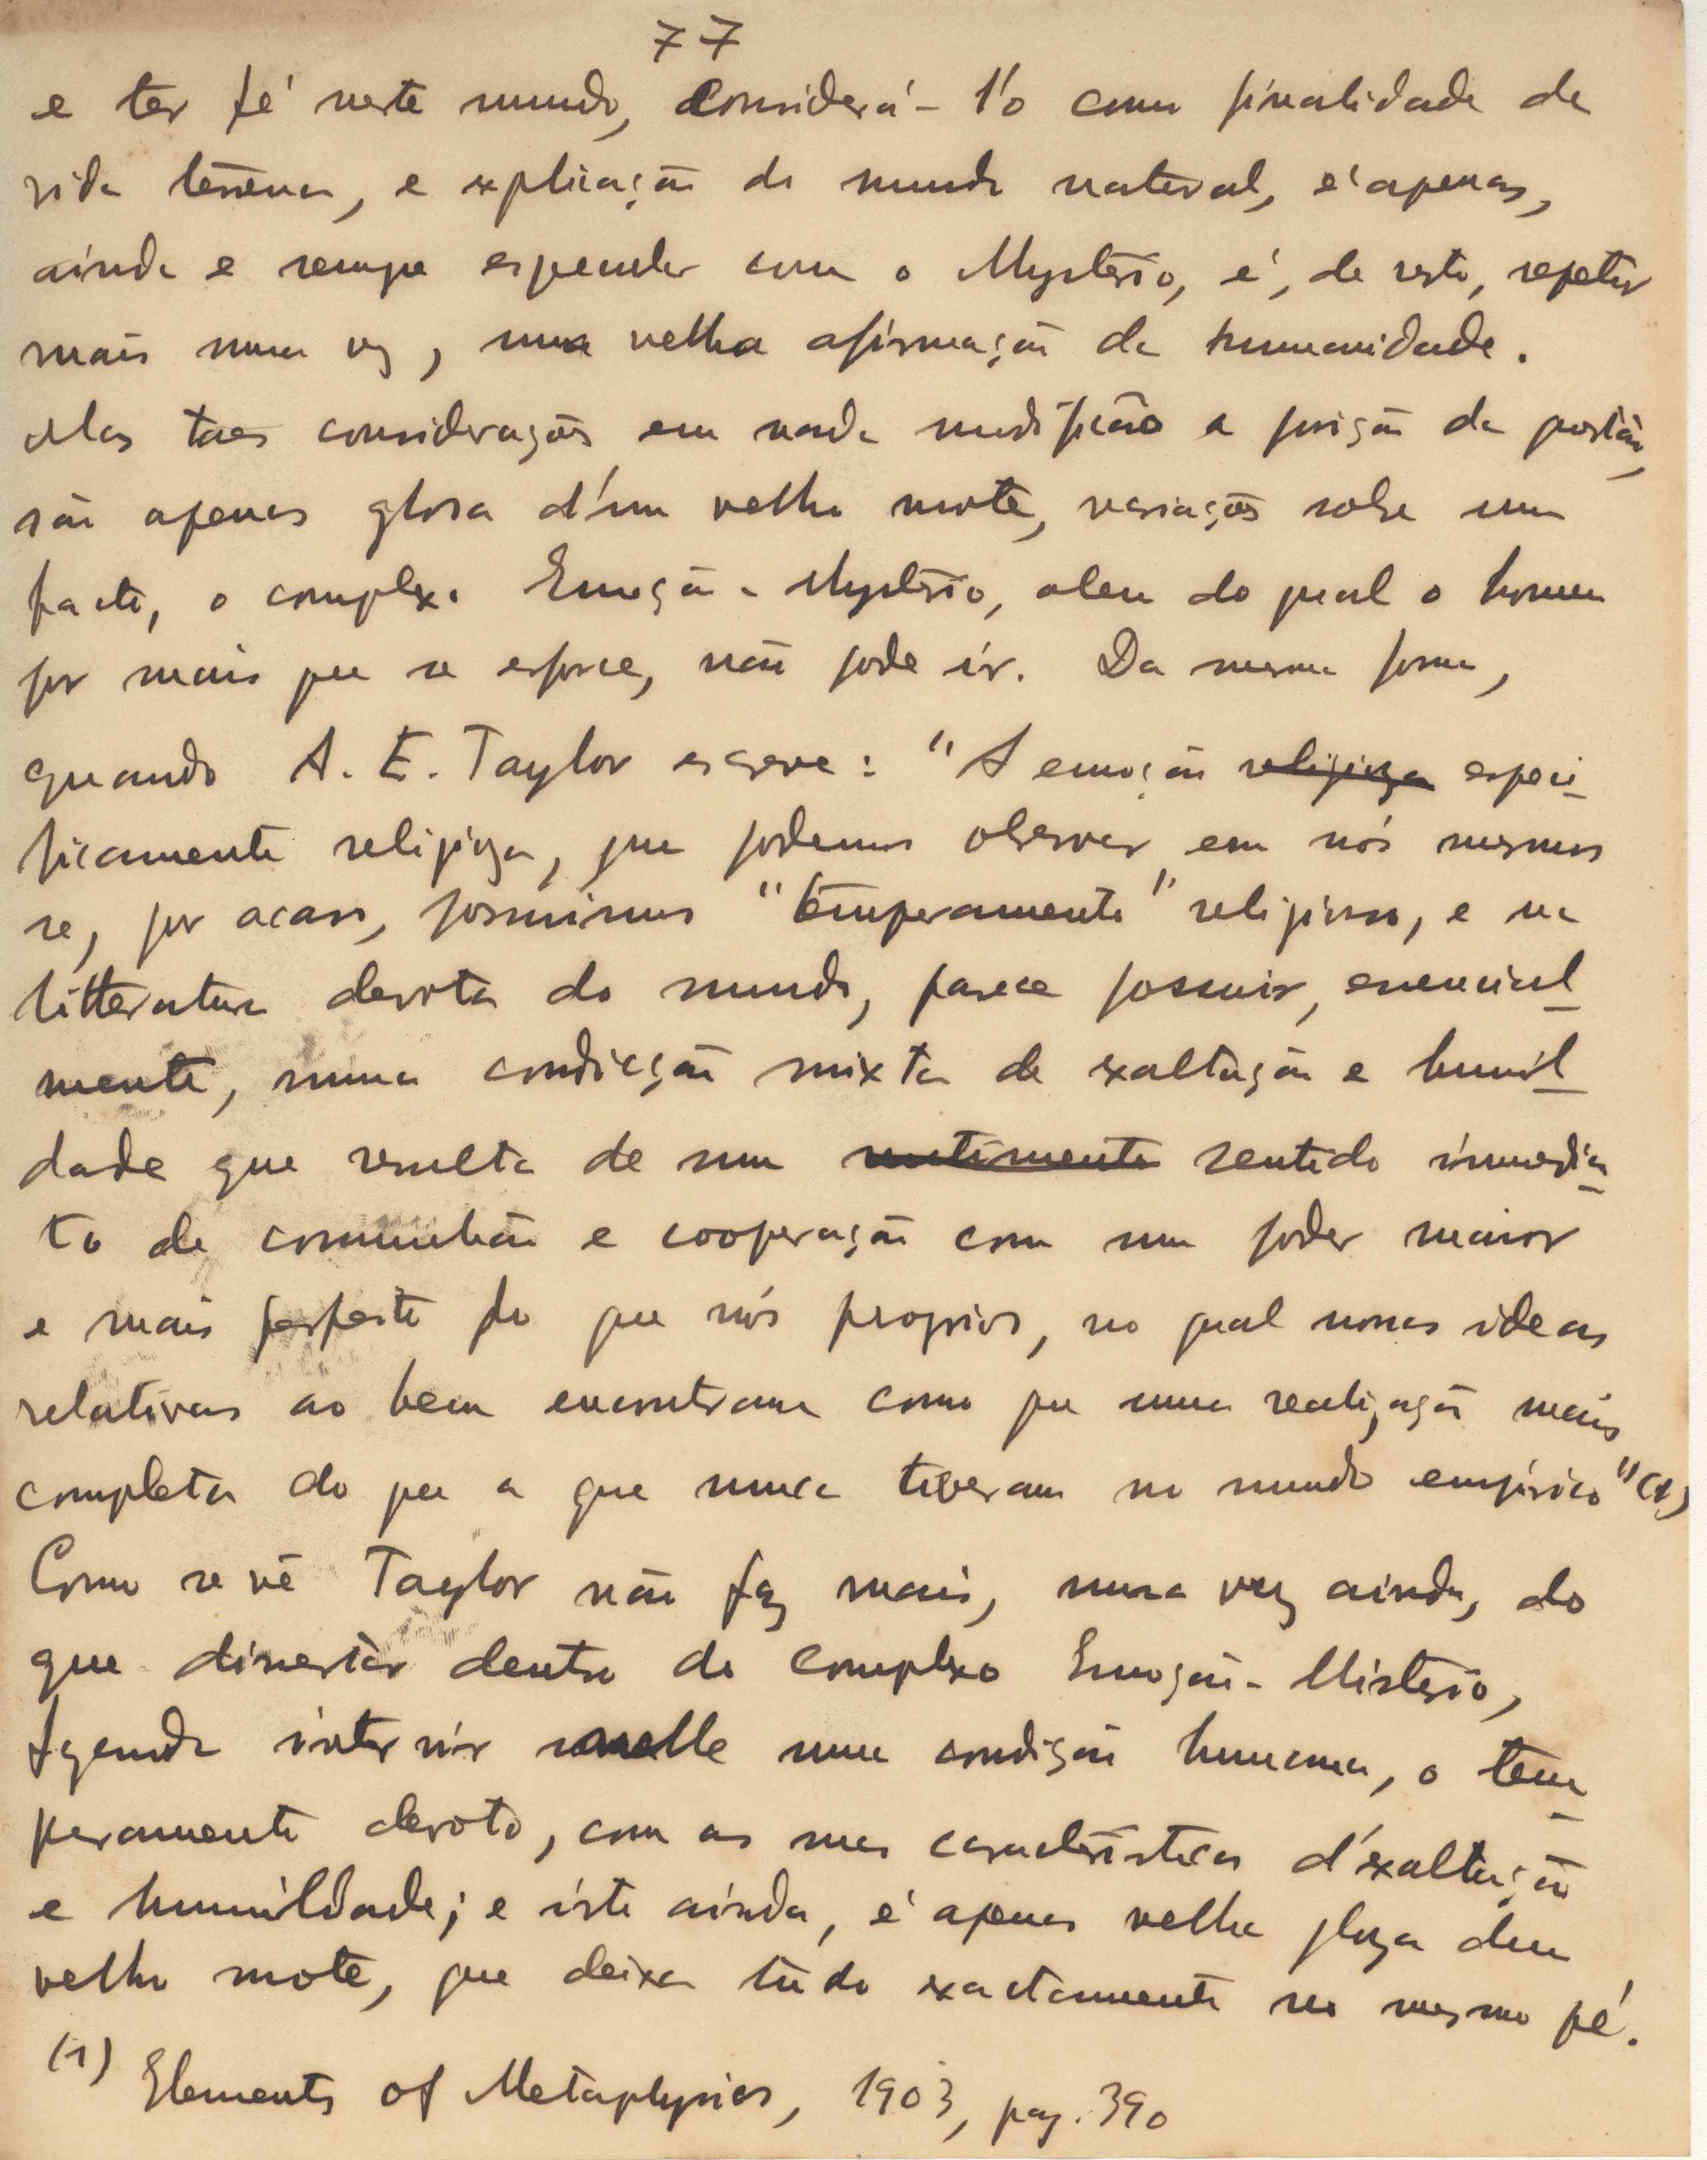 77
e ter fé neste mundo, considerá-l'o como finalidade da
vida terrena, e explicação do mundo natural, é apenas,
ainda e sempre especular com o Mysterio, é, de resto, repetir
mais uma vez, uma velha afirmação da humanidade.
Mas taes considerações em nada modificão a posição da questão,
são apenas glosa d'um velho mote, variações sobre um
facto, o complexo Emoção-Mysterio, alem do qual o homem
por mais que se esforce, não pode ir. Da mesma forma,
quando A. E. Taylor escreve: "A emoção religioza especi-
ficamente religioza, que podemos observar em nós mesmos
se, por acaso, possuimos "temperamento" religioso, e na
litteratura devota do mundo, parece possuir, essencial-
mente, uma condicção mixta de exaltação e humil-
dade que resulta de um sentimento sentido immedia-
to de communhão e cooperação com um poder maior
e mais perfeito do que nós proprios, no qual nossas ideas
relativas ao bem encontram como que uma realização mais
completa do que a que nunca tiveram no mundo empirico" (1)
Como se vê Taylor não faz mais, uma vez ainda, do
que dissertar dentro do complexo Emoção-Misterio,
fazendo intervir nelle uma condição humana, o tem-
peramento devoto, com as suas caracteristicas d'exaltação
e humildade; e isto ainda, é apenas velha gloza dum
velho mote, que deixa tudo exactamente no mesmo pé.
(1) Elements of Metaphysics, 1903, pag. 390